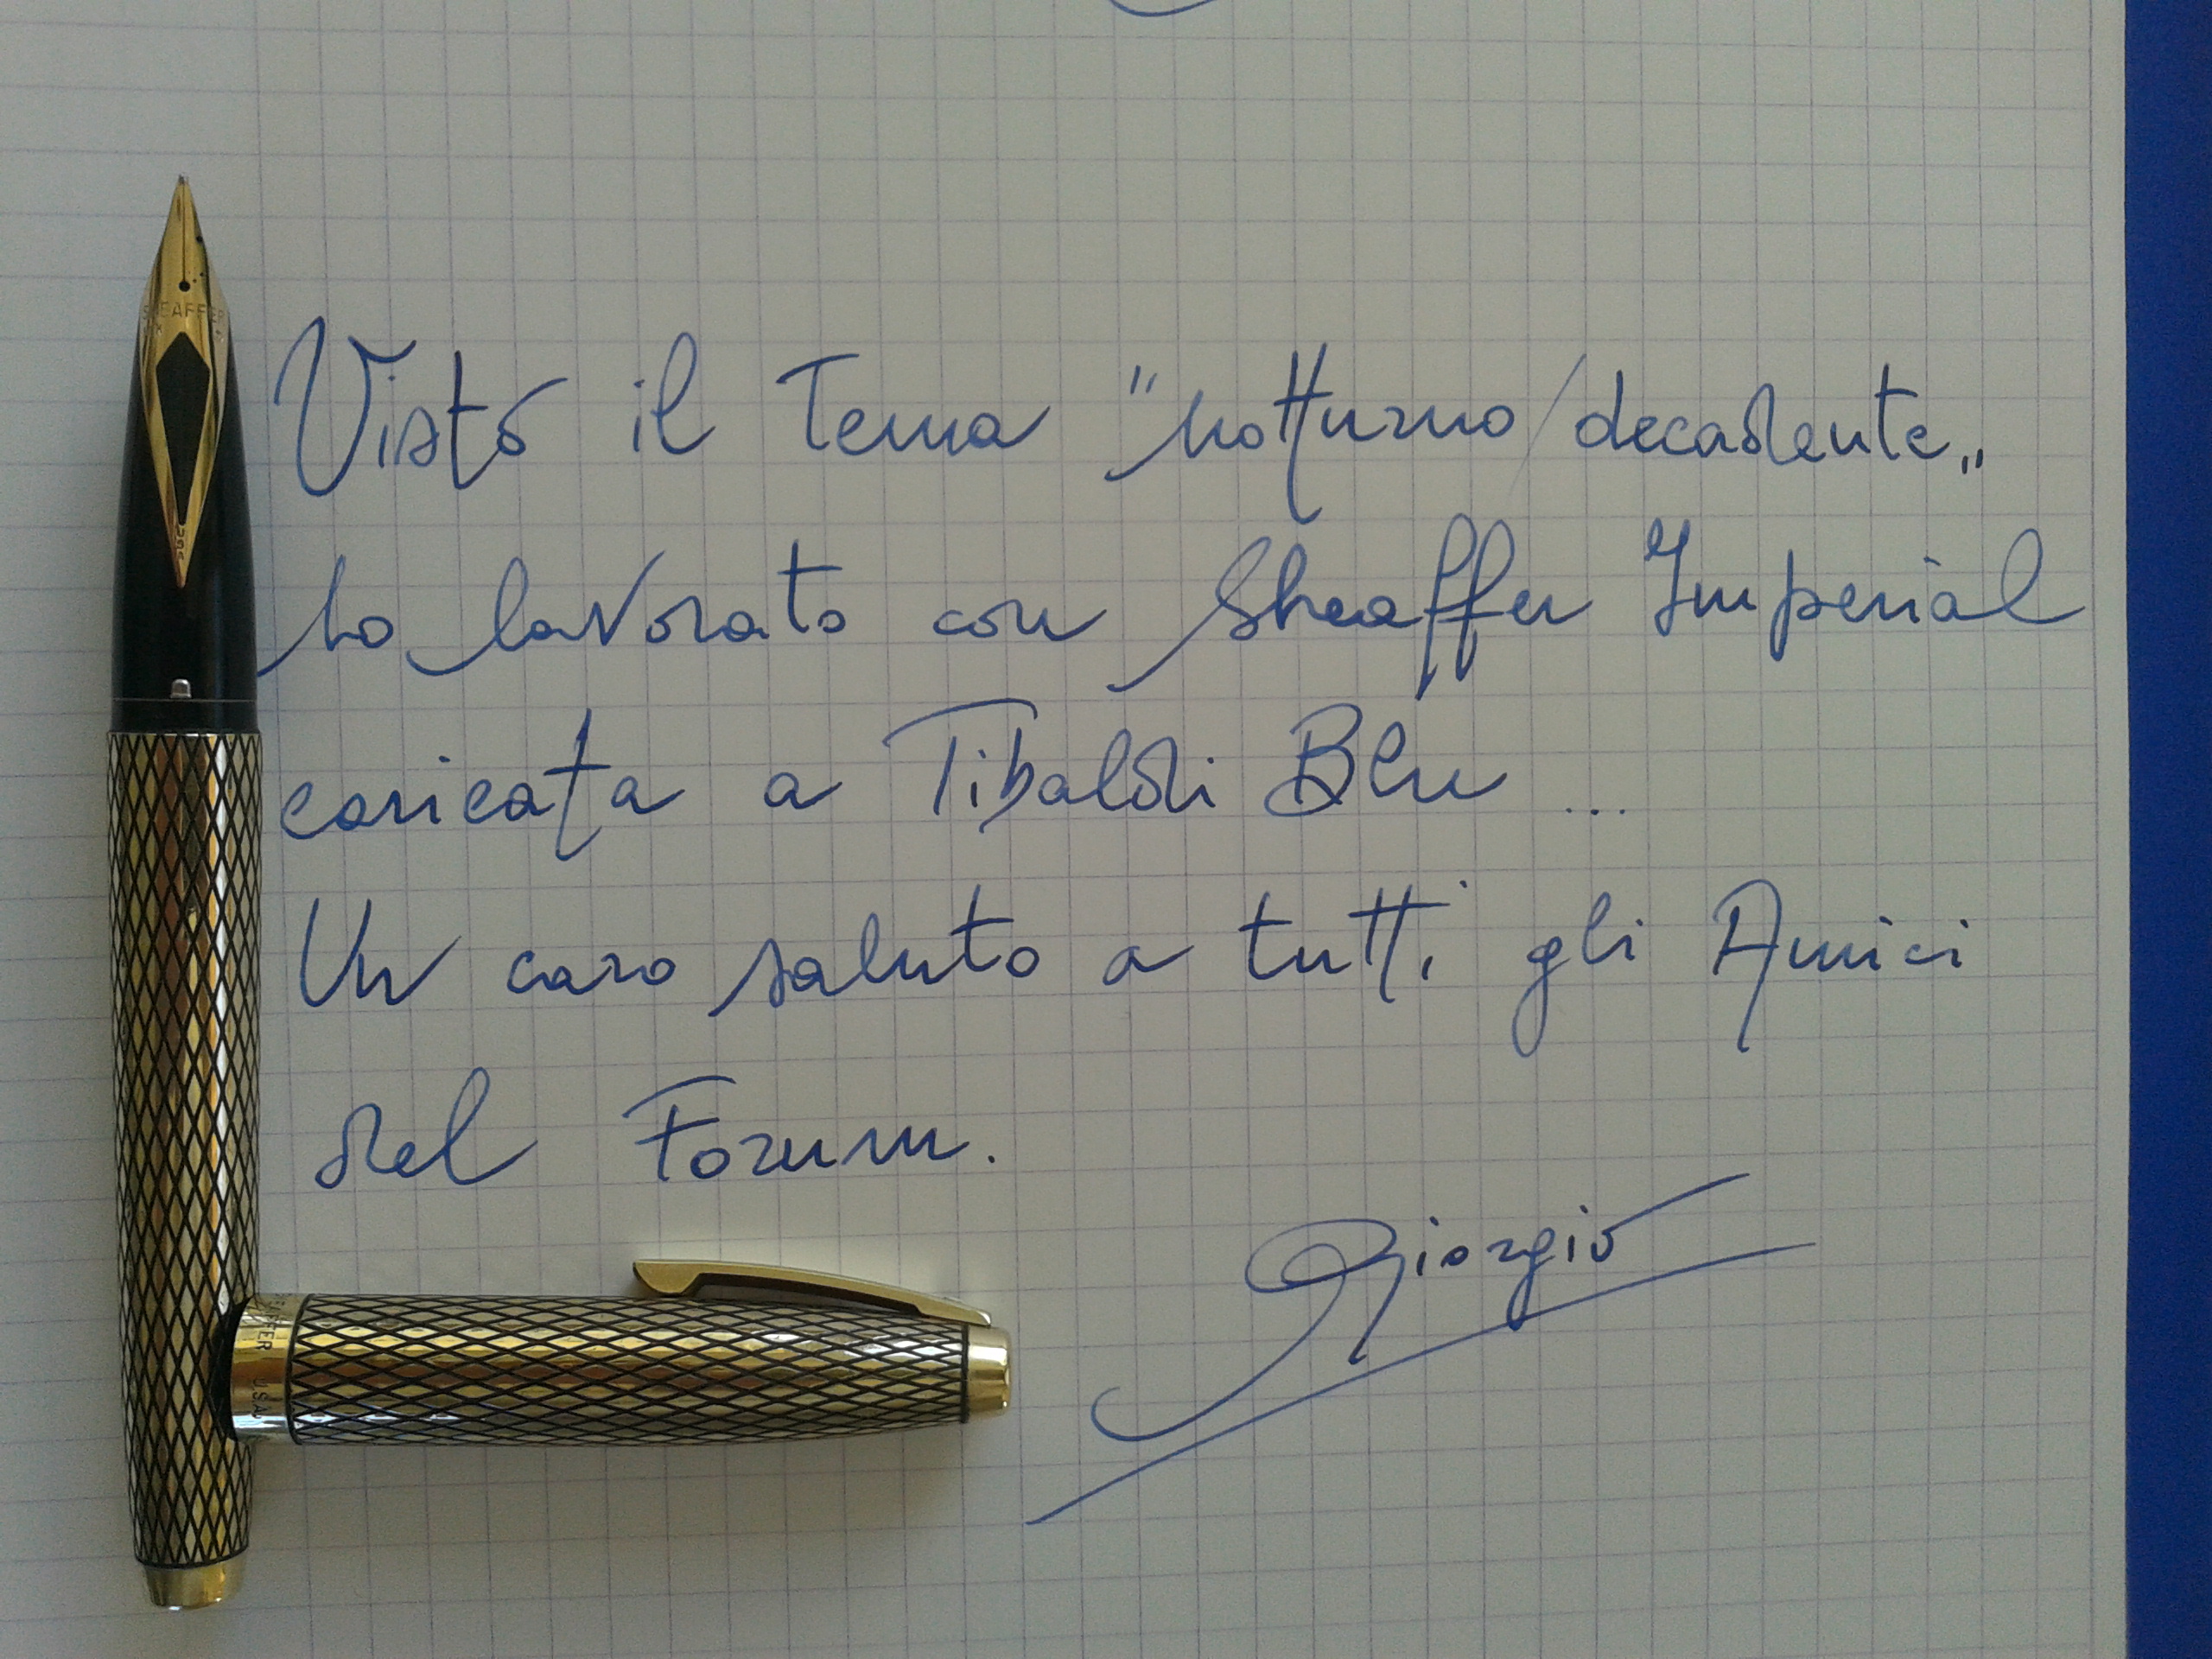 Visto il Tema "notturno/decadente„
ho lavorato con Sheaffer Imperial
caricata a Tibaldi Blu ...
Un caro saluto a tutti gli Amici
del Forum.
Giorgio
SHEAFFER
USA
SHEAFFER U.S.A.